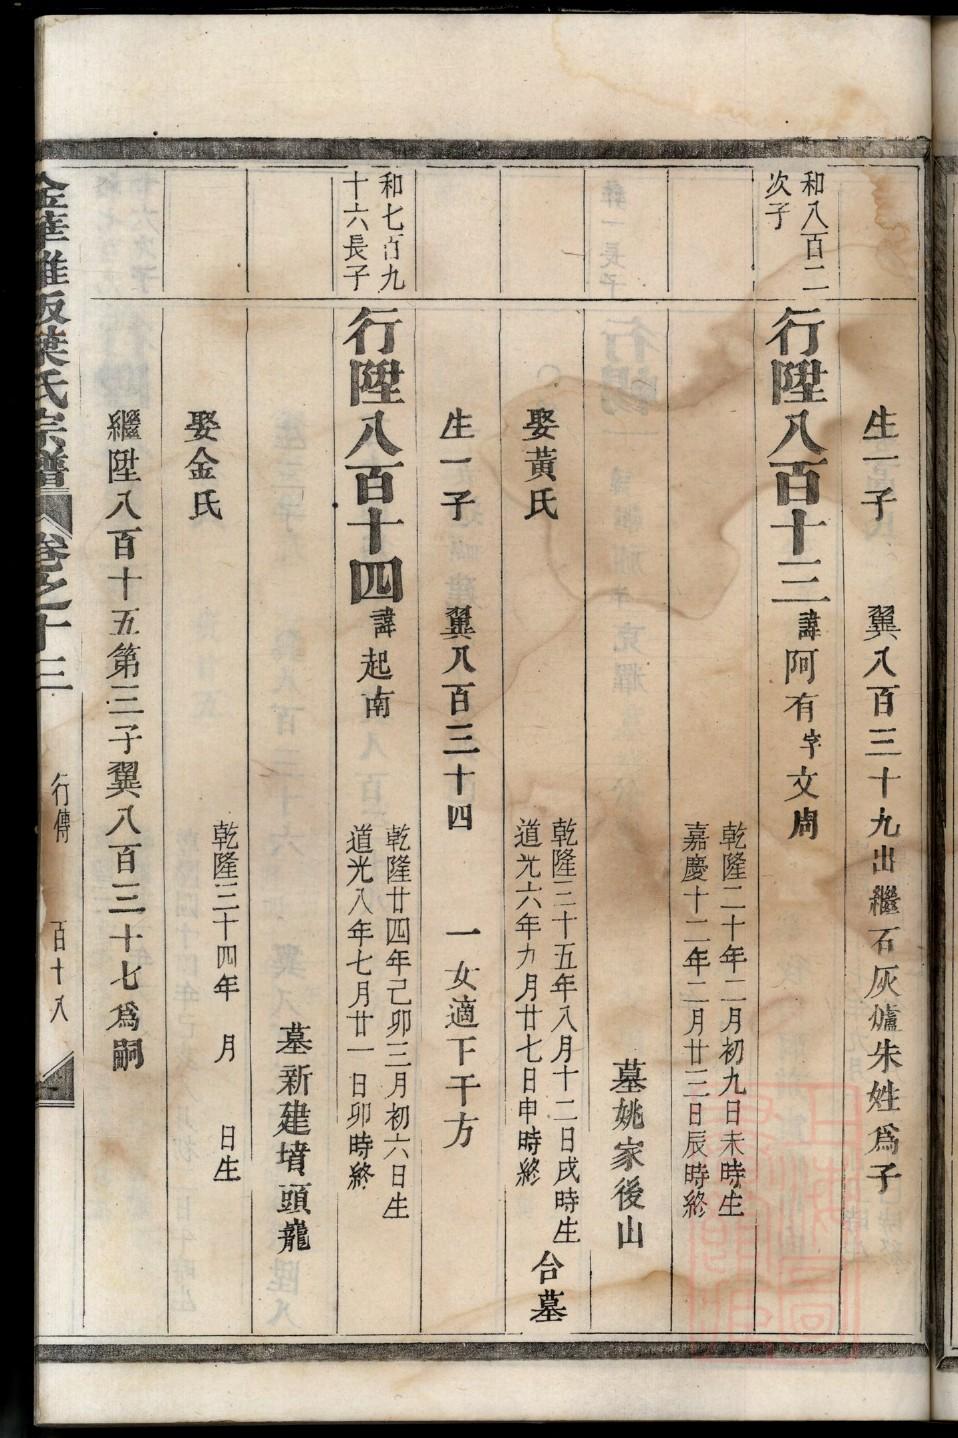 生一子　翼八百三十九出繼石灰爐朱姓爲子
和八百二
次子
行陞八百十三諱阿有字文周
乾隆二十年二月初九日未時生
嘉慶十二年二月廿三日辰時終
墓姚家後山
娶黃氏
乾隆三十五年八月十二日戌時生
道光六年九月廿七日申時終
合墓
生一子　翼八百三十四　一女適下干方
和七百九
十六長子
行陞八百十四諱起南
乾隆廿四年己卯三月初六日生
道光八年七月廿一日卯時終
墓新建墳頭龍
娶金氏
乾隆三十四年　月　日生
繼陞八百十五第三子翼八百三十七爲嗣
金華 葉氏宗譜　卷之十三　行傳　百十八